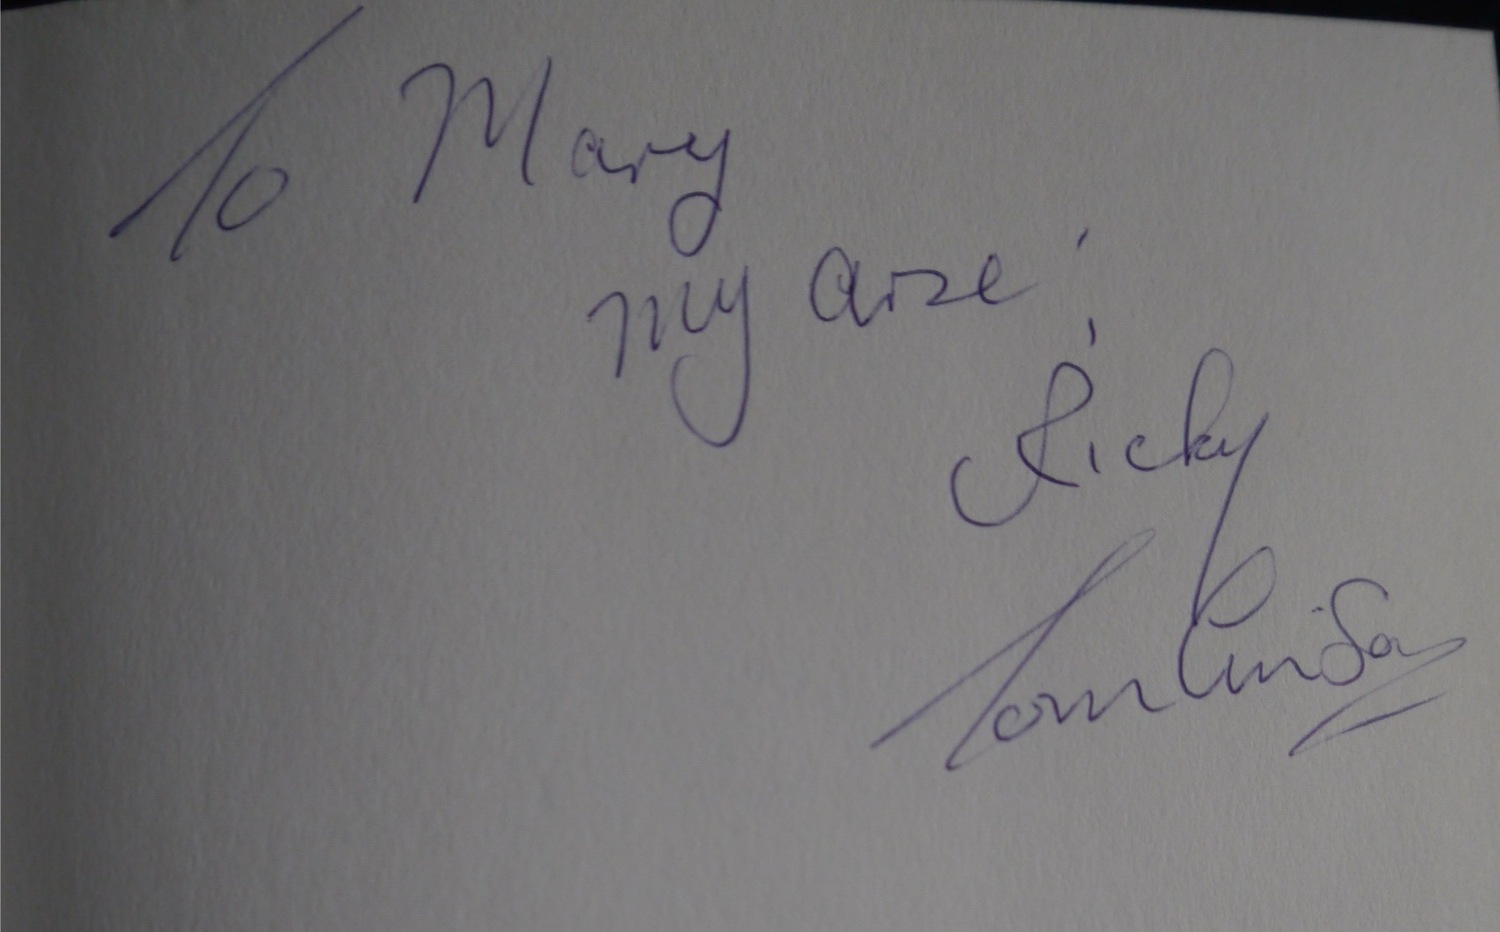 To Mary
my arse!
Ricky
Tomlinson